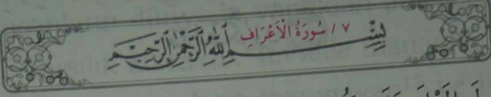 ٧ / سُورَةُ الْأَعْرَافِ
بِسْمِ اللَّهِ الرَّحْمَٰنِ الرَّحِيمِ